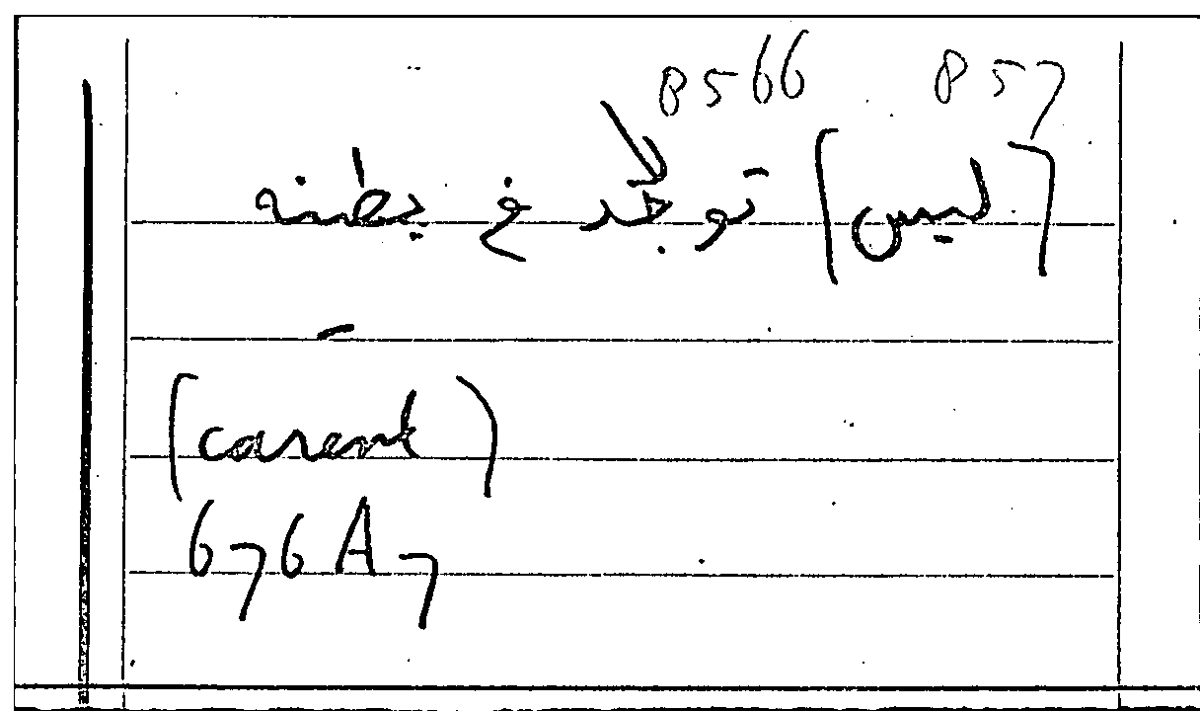 8566 857
[ليس] توجد في بطنه
(carent)
676A7